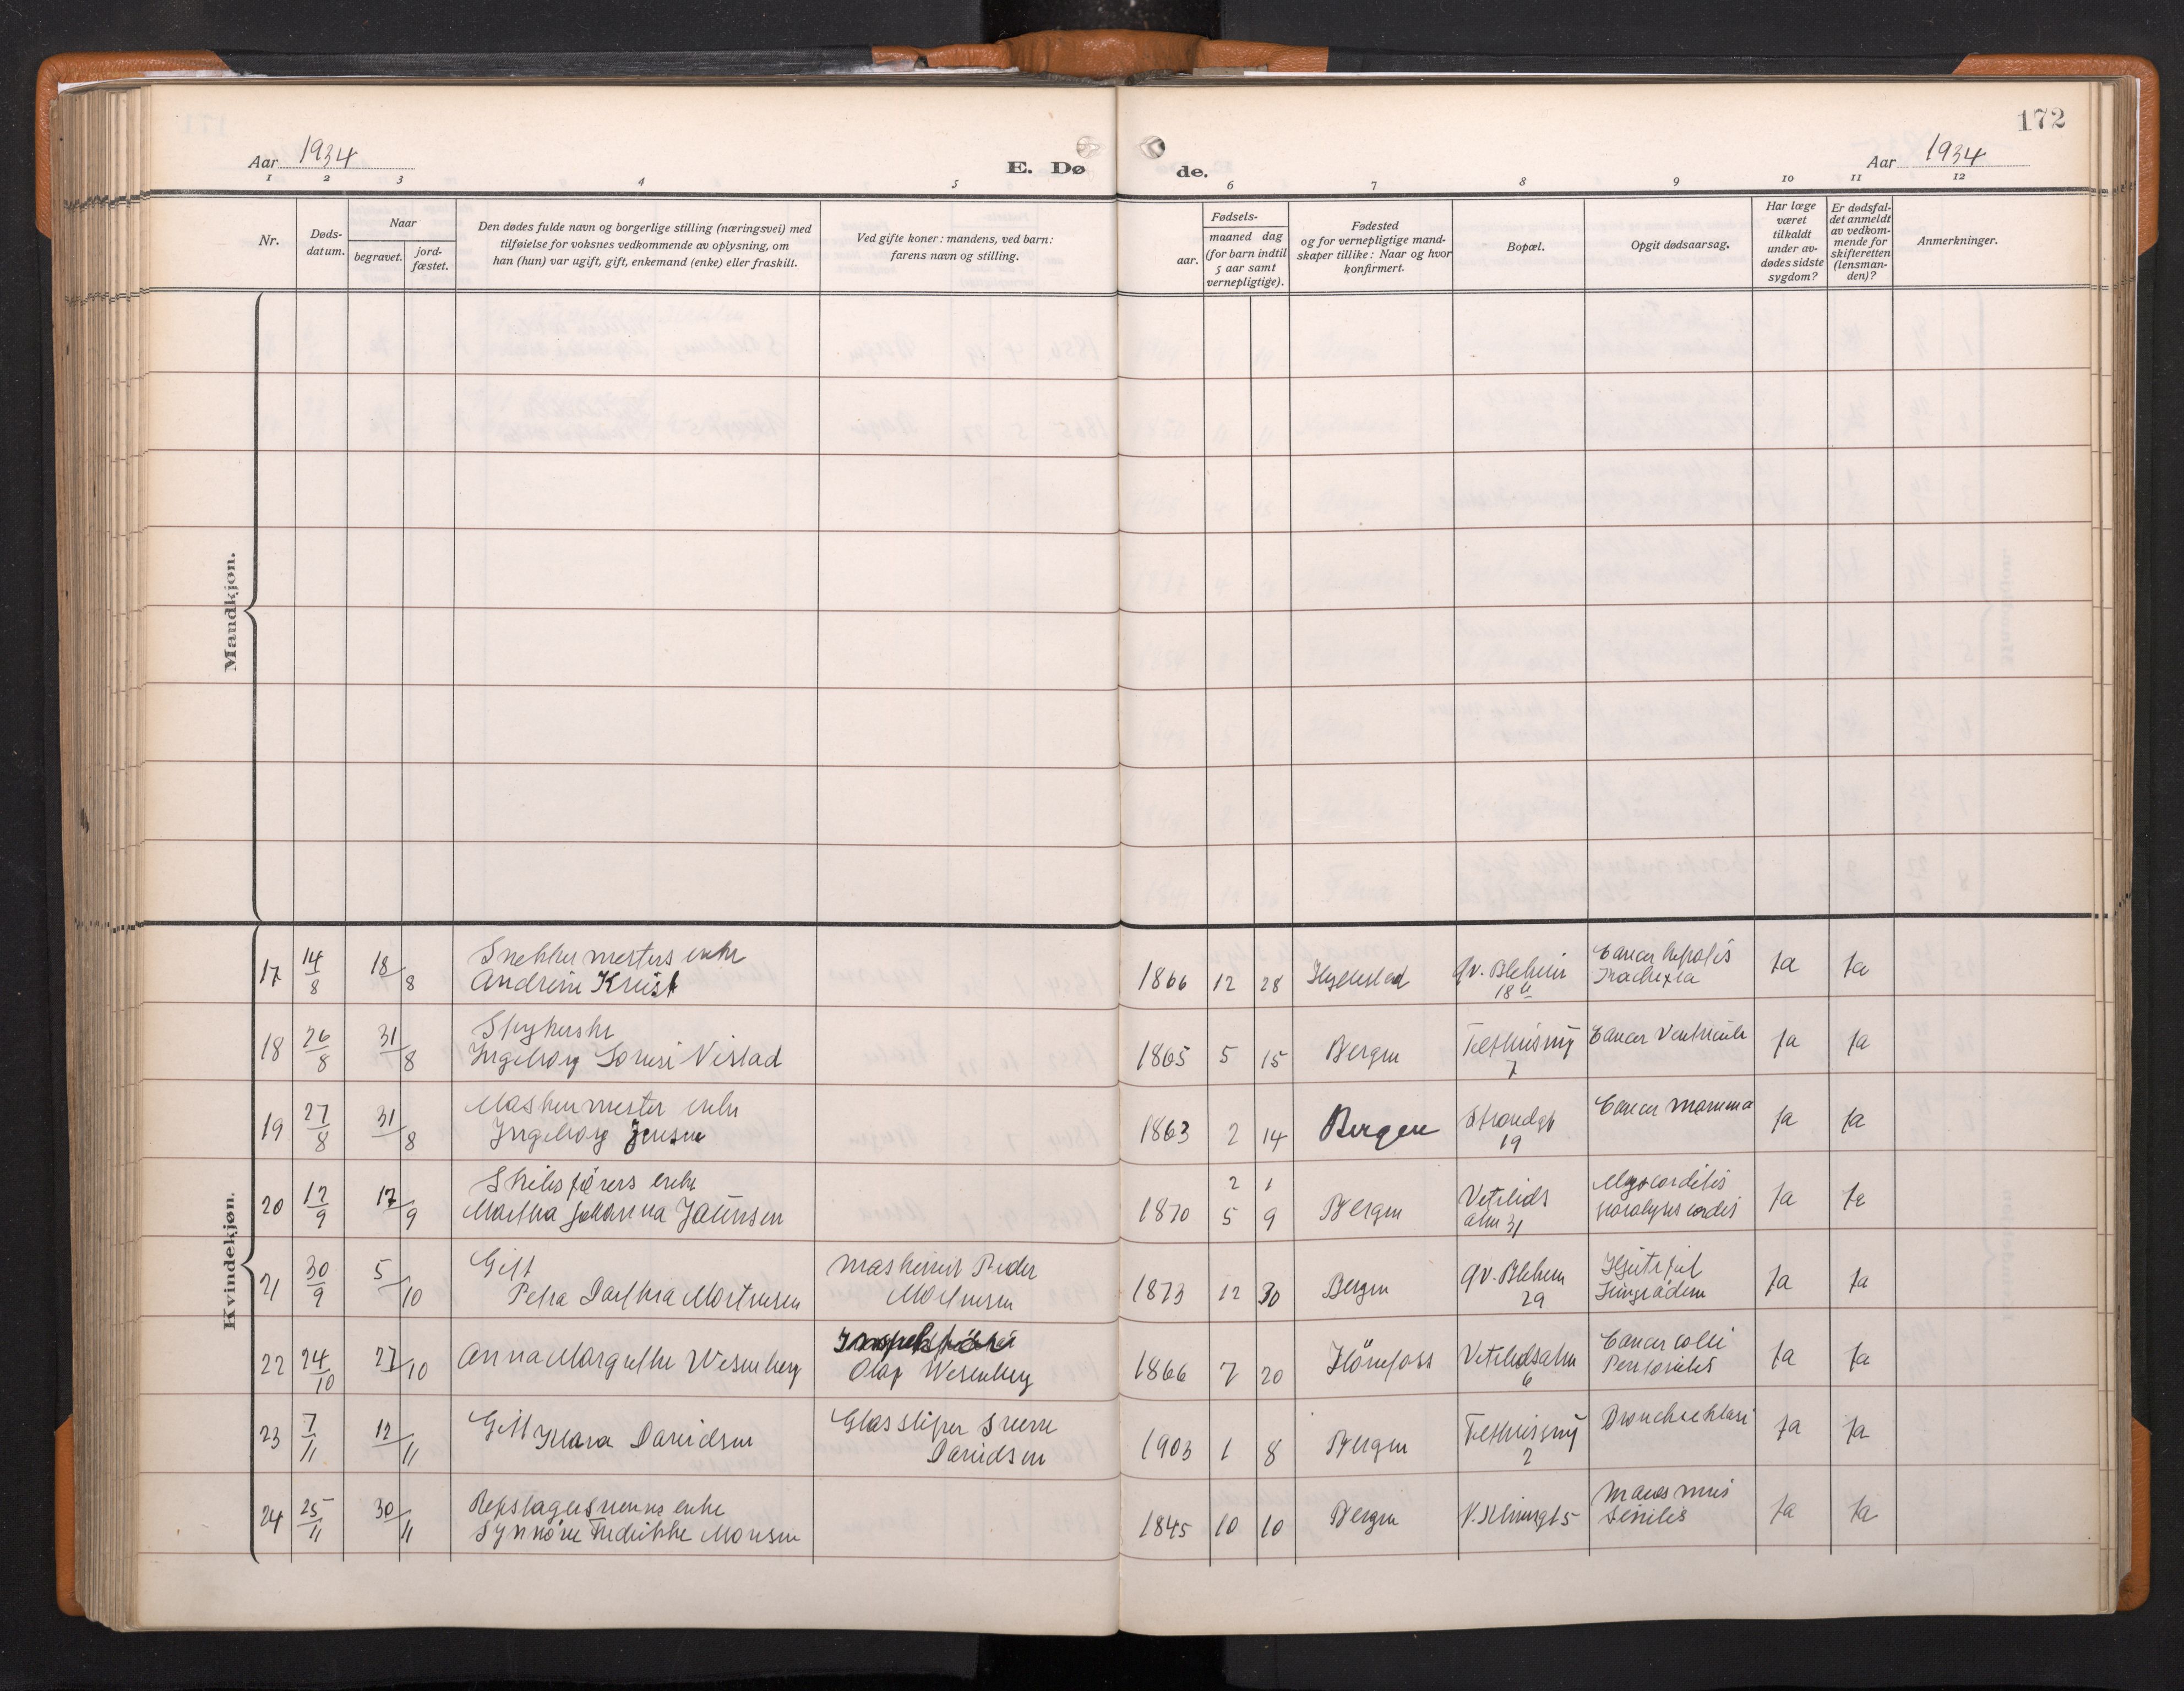 172
Aar 1934
E. Dø
de.
Aar 1934
1 2 3 4 5 6 7 8 9 10 11 12
Nr.
Døds-
datum.
Naar
begravet.
jord-
fæstet.
Den dødes fulde navn og borgerlige stilling (næringsvei) med
tilføielse for voksnes vedkommende av oplysning, om
han (hun) var ugift, gift, enkemand (enke) eller fraskilt.
Ved gifte koner: mandens, ved barn:
farens navn og stilling.
Fødsels-
aar.
maaned dag
(for barn indtil
5 aar samt
vernepligtige).
Fødested
og for vernepligtige mand-
skaper tillike: Naar og hvor
konfirmert.
Bopæl.
Opgit dødsaarsag.
Har læge
været
tilkaldt
under av-
dødes sidste
sygdom?
Er dødsfal-
det anmeldt
av vedkom-
mende for
skifteretten
(lensman-
den)?
Anmerkninger.
Mandkjøn.
Kvindekjøn.
17 14/8 18/8 Snekkermesters enke
Andrine 1866 12 28 18 Cancer hepatis Ja Ja
18 26/8 31/8
Ingeborg Lovise 1865 5 15 Bergen 7 Cancer Ventriculi Ja Ja
19 27/8 31/8 Maskinmester enke
Ingeborg Jensen 1863 2 14 Bergen Strandgt
19 Cancer mamma Ja Ja
20 12/9 17/9 Skibsførers enke
Martha Johanna 2 1
1870 5 9 Bergen Vetrlids
alm 31 Myocarditis
paralysis cordis Ja Ja
21 30/9 5/10 Gift
Petra Dorthea Mortensen Maskinist Peder
Mortensen 1873 12 30 Bergen 29 Hjertefeil
Lungeødem Ja Ja
22 24/10 27/10 Anna Margrethe Wesenberg
Olaf Wesenberg 1866 7 20 Hønefoss Vetrlidsalm
6 Cancer coli
Peritonitis Ja Ja
23 7/11 12/11 Gift Klara Davidsen Glassliper Sverre
Davidsen 1903 1 8 Bergen 2 Bronchiektasi Ja Ja
24 25/11 30/11 Repslagersvenns enke
Synnøve Fredrikke Monsen 1845 10 10 Bergen 5 Marasmus
Senilis Ja Ja